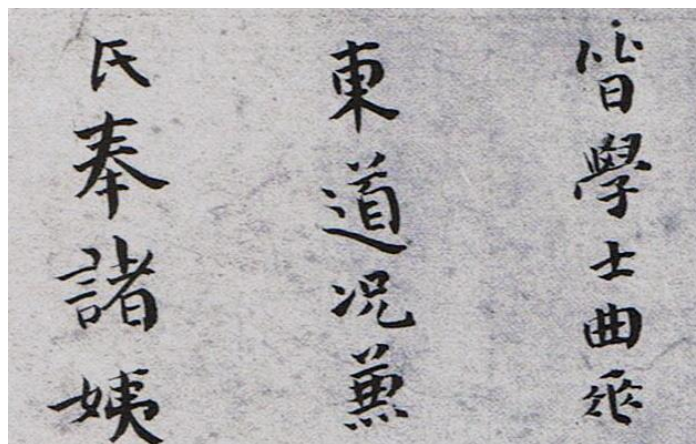 皆學士曲垂
東道况兼
氏奉諸姨